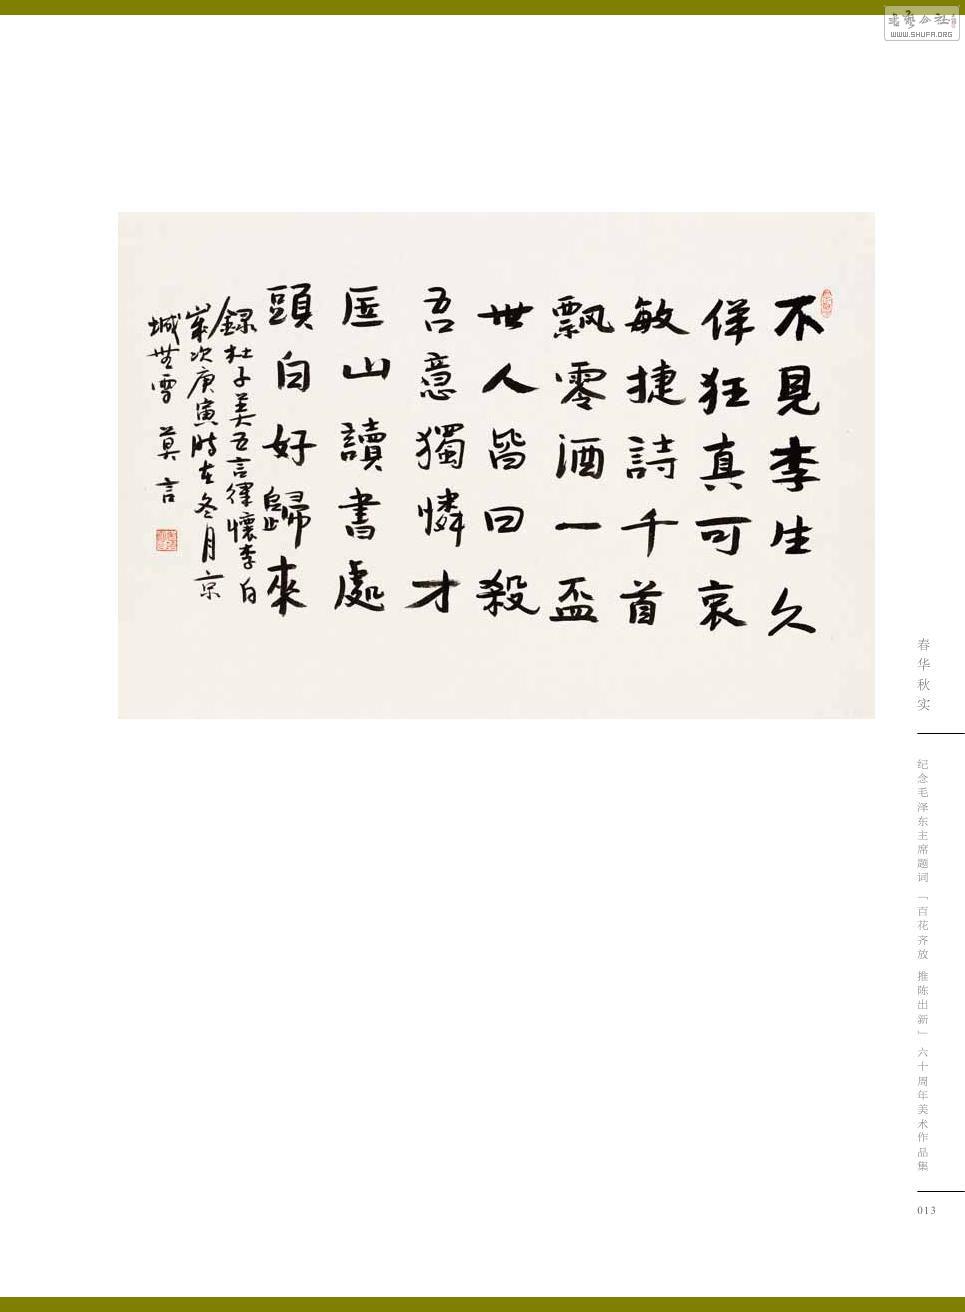 不見李生久
佯狂真可哀
世人皆曰殺
吾意獨憐才
敏捷詩千首
飄零酒一盃
匡山讀書處
頭白好歸來
録杜子美五言律懷李白
歲次庚寅時在冬月京
城無雪 莫言
春华秋实
纪念毛泽东主席题词「百花齐放 推陈出新」六十周年美术作品集
013
书艺公社
WWW.SHUFA.ORG